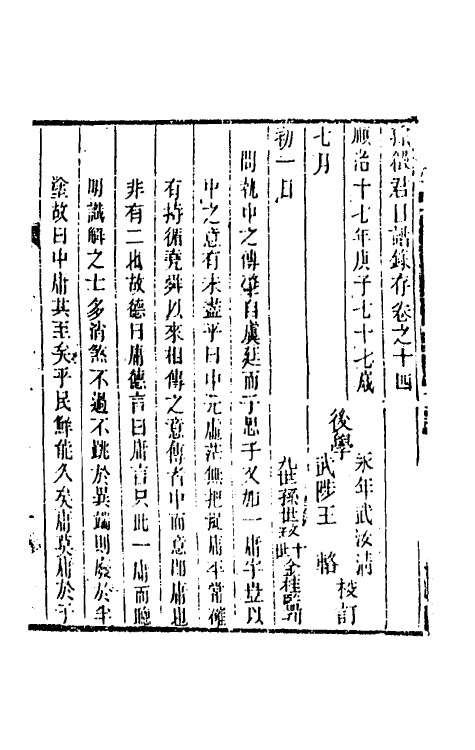 孫徵君日譜錄存卷之十四
後學
永年武汝清
武陟王輅
校訂
順治十七年庚子七十七歲
七月
初一日
問執中之傳肇自虞廷而子思子又加一庸字豈以
中之意有未盡乎曰中元虛茫無把捉庸平常確
有持循堯舜以來相傳之意傳者中而意卽庸也
非有二也故德曰庸德言曰庸言只此一庸而聰
明識解之士多消煞不過不跳於異端則廢於半
塗故曰中庸其至矣乎民鮮能久矣庸莫庸於子